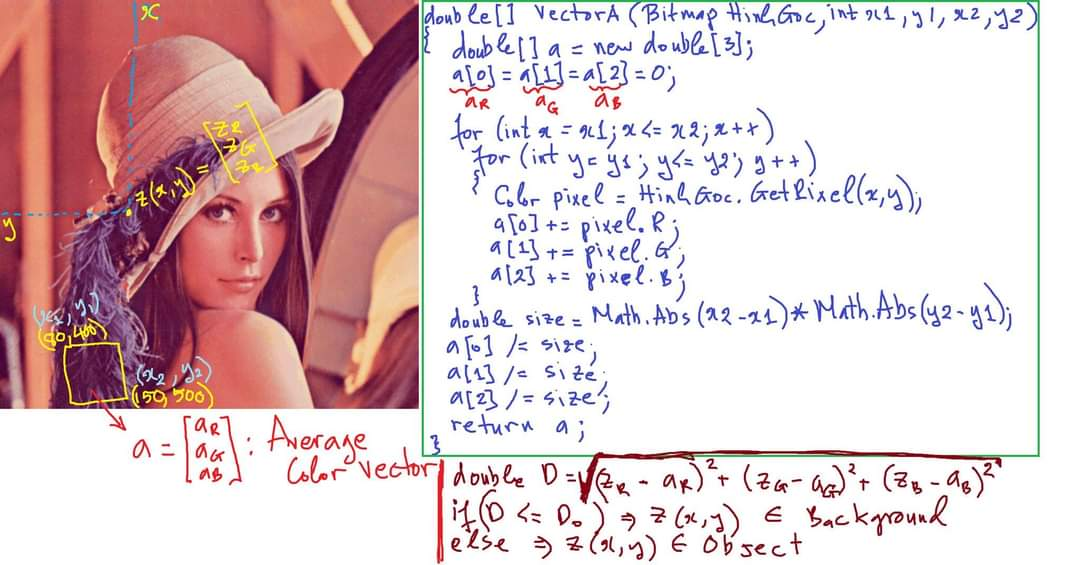 x
z(x,y) = [zR zG zB]
y
(x1, y1)
(90,400)
(x2, y2)
(150, 500)
a = [aR aG aB] : Average Color Vector
double[] VectorA (Bitmap HinhGoc, int x1, y1, x2, y2)
{
double[] a = new double[3];
a[0] = a[1] = a[2] = 0;
aR aG aB
for (int x = x1; x <= x2; x++)
for (int y = y1; y <= y2; y++)
{
Color pixel = HinhGoc.GetPixel(x,y);
a[0] += pixel.R;
a[1] += pixel.G;
a[2] += pixel.B;
}
double size = Math.Abs(x2-x1)*Math.Abs(y2-y1);
a[0] /= size;
a[1] /= size;
a[2] /= size;
return a;
}
double D = √(zR - aR)² + (zG - aG)² + (zB - aB)²
if(D <= D₀) ⇒ z(x,y) ∈ Background
else ⇒ z(x,y) ∈ Obsect